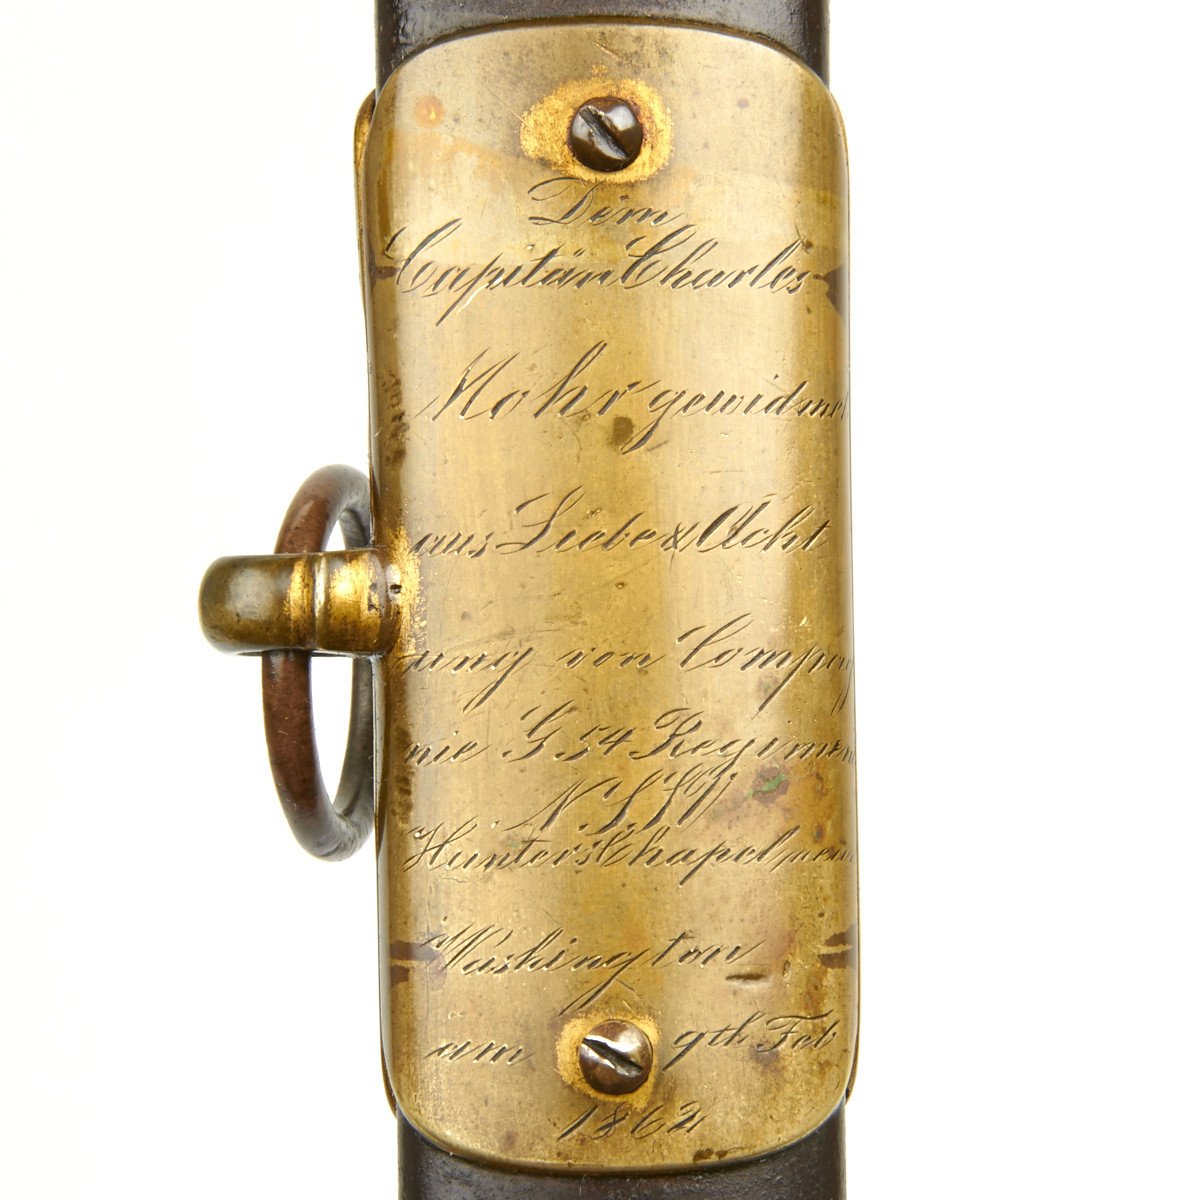 Dem
Capitän Charles
Mohr gewidmet
aus Liebe & Acht
ung von Compag
nie G. 54 Regiment
N.Y.S.V.
Hunters Chapel, near
Washington
am 9th Feb
1862